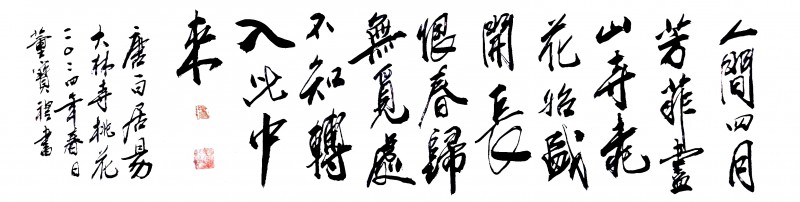 人間四月
芳菲盡
山寺桃
花始盛
開長
恨春歸
無覓處
不知轉
入此中
來
唐白居易
大林寺桃花
二〇二四年春日
董寶書